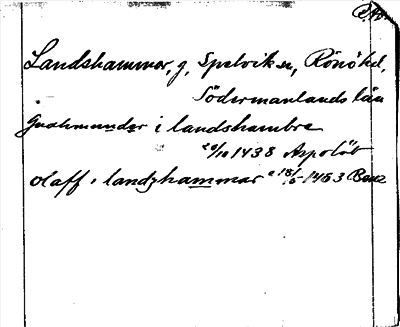 Landshammar, g, Spelvik sn, Rönö hd,
Södermanlands län
Gudhmunder i landshambre
20/10 1438 Aspolöt
olaff i landzhammar 18/5 1463